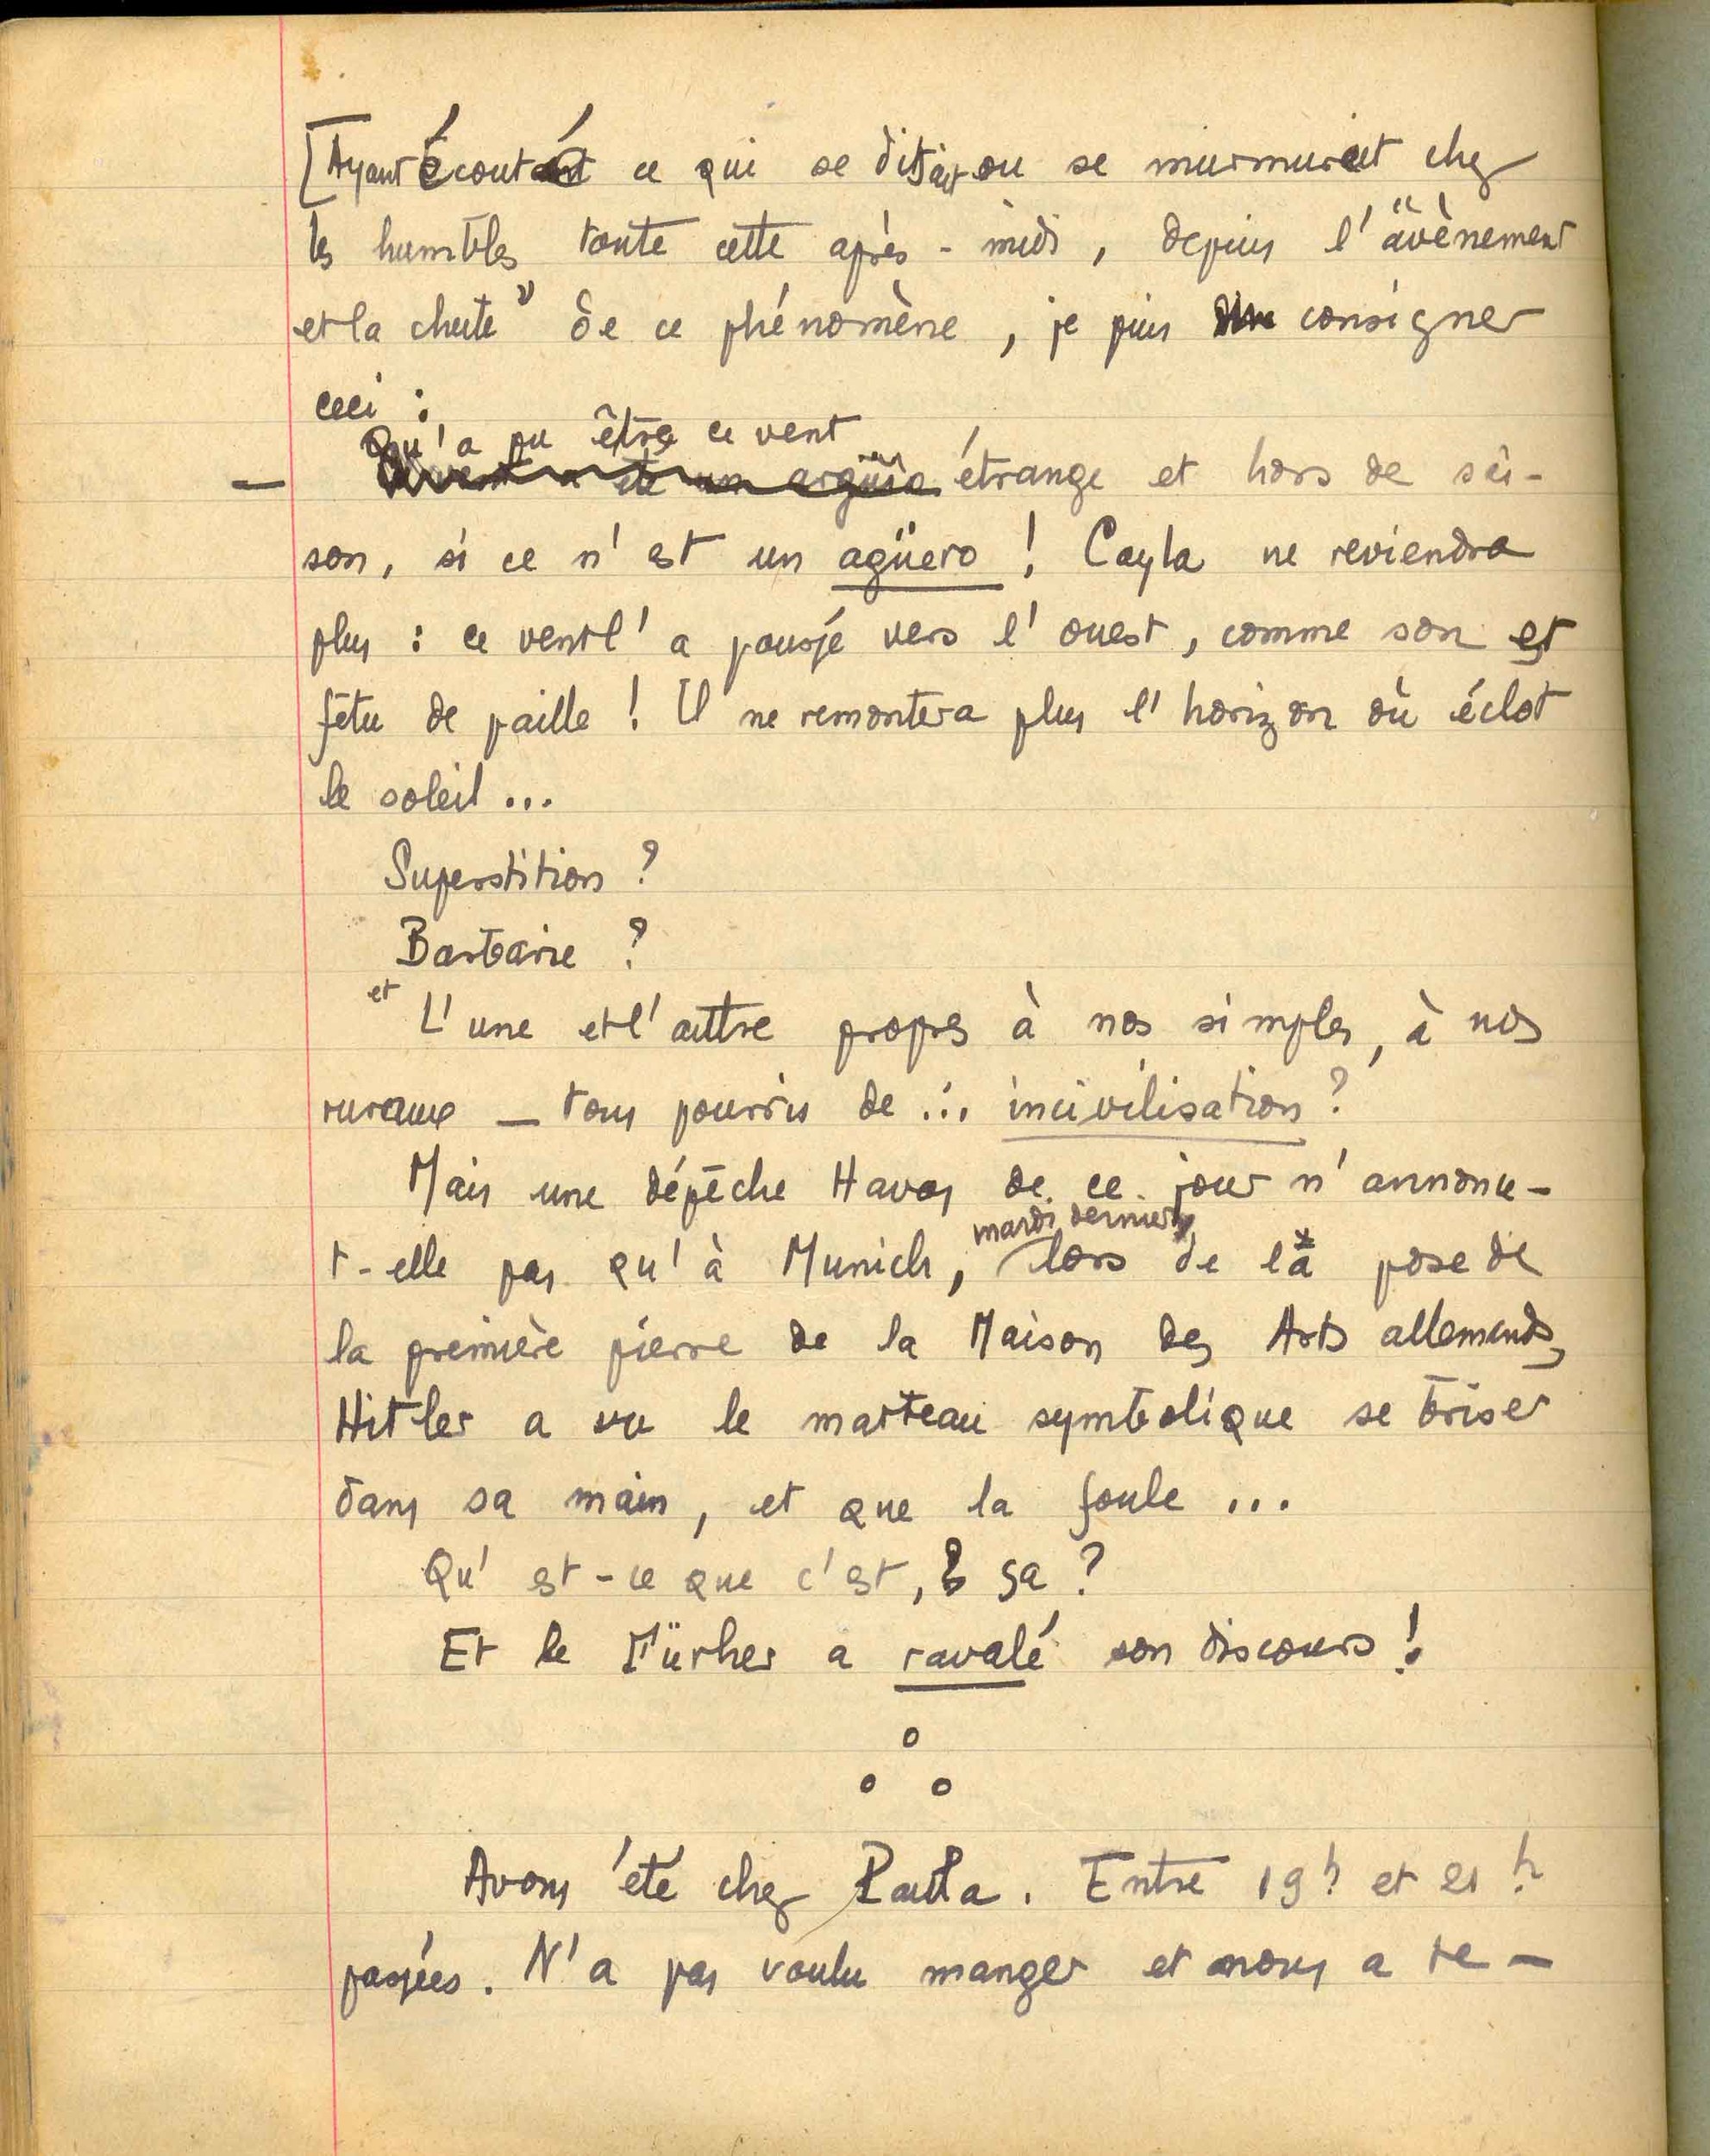 [Ayant écouté ce qui se disait ou se murmurait chez
les humbles toute cette après-midi, depuis l'"avènement
et la chute" de ce phénomène, je puis consigner
ceci :
Qu'a pu être ce vent
— étrange et hors de sai-
son, si ce n'est un agüero ! Cayla ne reviendra
plus : ce vent l'a poussé vers l'ouest, comme son et
fétu de paille ! Il ne remontera plus l'horizon où éclot
le soleil...
Superstition ?
Barbarie ?
et L'une et l'autre propres à nos simples, à nos
ruraux — tous pourris de ... incivilisation ?
Mais une dépêche Havas de ce jour n'annonce-
mardi dernier,
t-elle pas qu'à Munich, lors de la pose de
la première pierre de la Maison des Arts allemands,
Hitler a vu le marteau symbolique se briser
dans sa main, et que la foule ...
Qu'est-ce que c'est, ça ?
Et le Fürher a ravalé son discours !
o
o o
Avons été chez Paula. Entre 19h et 21h
passées. N'a pas voulu manger et nous a re-